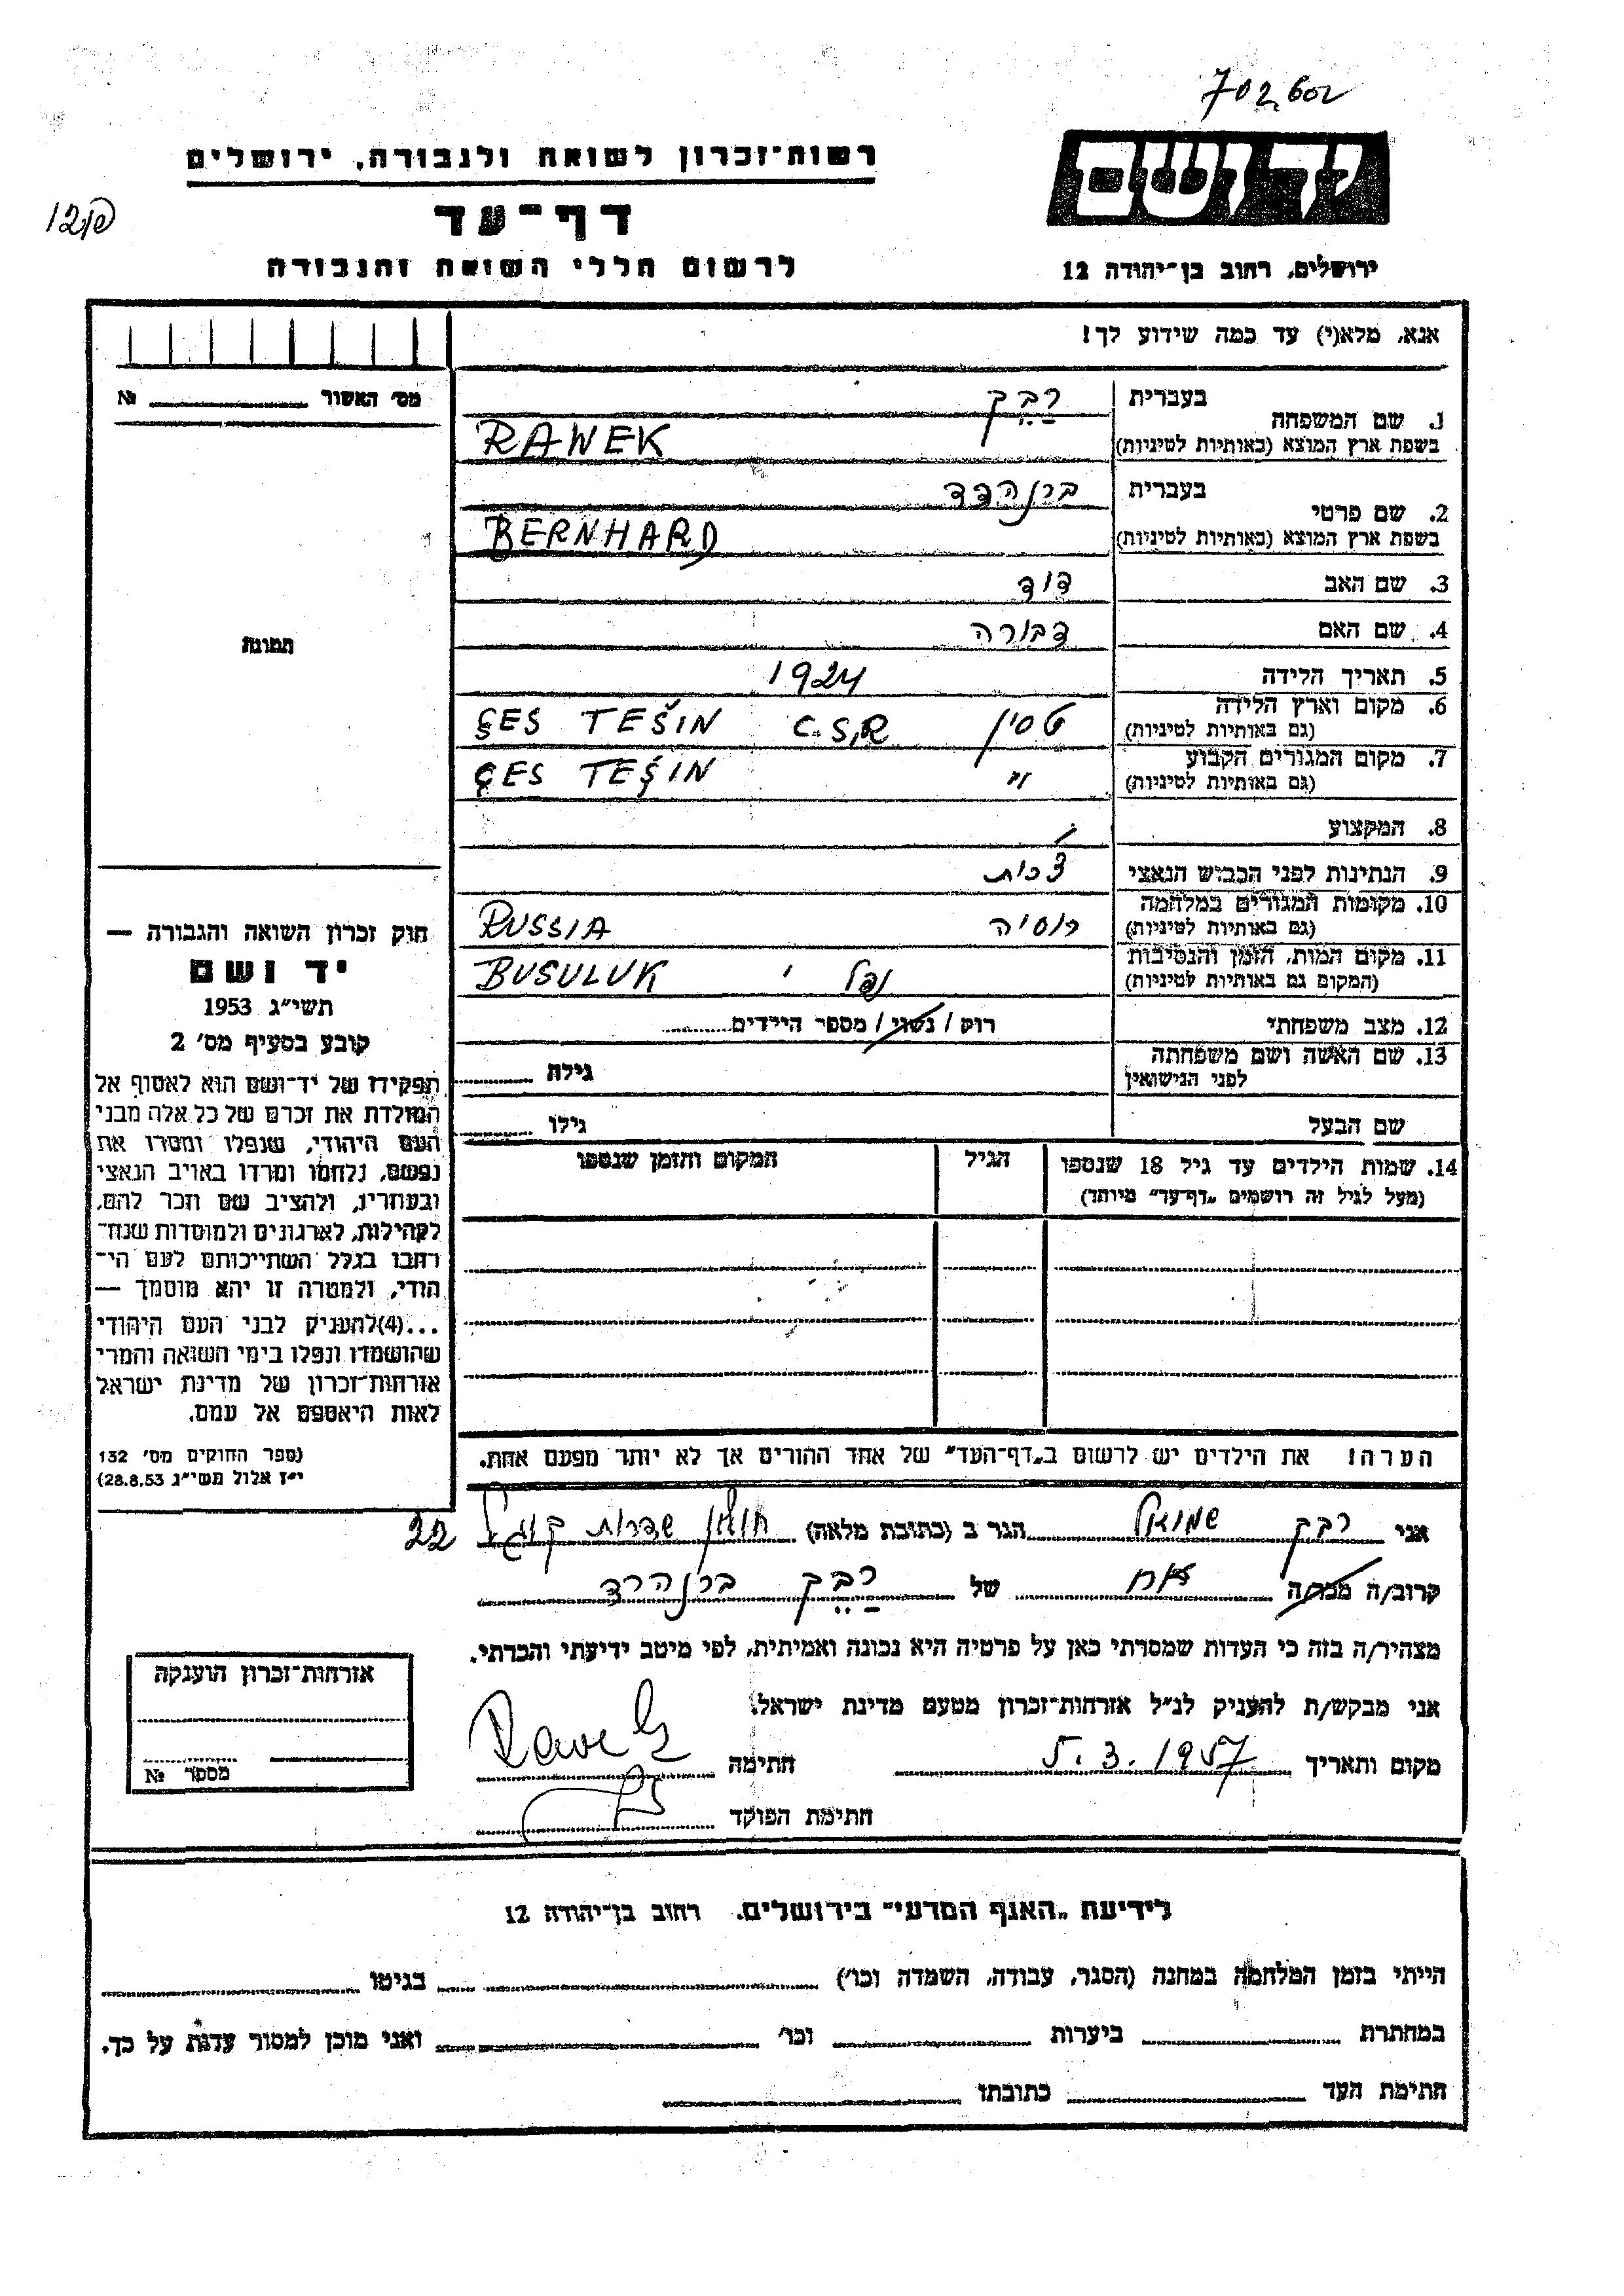 702602
רשות־זכרון לשואה ולגבורה, ירושלים
יד ושם
דף־עד
לרשום חללי השואה והגבורה
ירושלים, רחוב בן־יהודה 12
אנא, מלא(י) עד כמה שידוע לך!
מס׳ האשור № 
1. שם המשפחה בעברית רבק
בשפת ארץ המוצא (באותיות לטיניות) RAWEK
2. שם פרטי בעברית ברנהרד
בשפת ארץ המוצא (באותיות לטיניות) BERNHARD
3. שם האב דוד
4. שם האם דבורה
תמונה
5. תאריך הלידה 1924
6. מקום וארץ הלידה (גם באותיות לטיניות) טסין C.S.R ČES TEŠIN
7. מקום המגורים הקבוע (גם באותיות לטיניות) " ČES TEŠIN
8. המקצוע
9. הנתינות לפני הכבוש הנאצי צכית
10. מקומות המגורים במלחמה (גם באותיות לטיניות) רוסיה RUSSIA
11. מקום המות, הזמן והנסיבות (המקום גם באותיות לטיניות) נפל BUSULUK
12. מצב משפחתי רווק / נשוי / מספר הילדים
13. שם האשה ושם משפחתה לפני הנישואין גילה
שם הבעל גילו
14. שמות הילדים עד גיל 18 שנספו הגיל המקום והזמן שנספו
(מעל לגיל זה רושמים „דף־עד״ מיוחד)
חוק זכרון השואה והגבורה —
יד ושם
תשי״ג 1953
קובע בסעיף מס׳ 2
תפקידו של יד־ושם הוא לאסוף אל
המולדת את זכרם של כל אלה מבני
העם היהודי, שנפלו ומסרו את
נפשם, נלחמו ומרדו באויב הנאצי
ובעוזריו, ולהציב שם וזכר להם,
לקהילות, לארגונים ולמוסדות שנח־
רחבו בגלל השתייכותם לעם הי־
הודי, ולמטרה זו יהא מוסמך —
...(4)להעניק לבני העם היהודי
שהושמדו ונפלו בימי השואה והמרי
אזרחות־זכרון של מדינת ישראל
לאות היאספם אל עמם.
(ספר החוקים מס׳ 132
י״ז אלול תשי״ג 28.8.53)
הערה! את הילדים יש לרשום ב„דף־העד״ של אחד ההורים אך לא יותר מפעם אחת.
אני רבק שמואל הגר ב (כתובת מלאה) חולון שדרות קוגל 22
קרוב/ה מכר/ה אח של רבק ברנהרד
מצהיר/ה בזה כי העדות שמסרתי כאן על פרטיה היא נכונה ואמיתית, לפי מיטב ידיעתי והכרתי.
אני מבקש/ת להעניק לנ״ל אזרחות־זכרון מטעם מדינת ישראל.
מקום ותאריך 5.3.1957 חתימה Rawek
חתימת הפוקד
אזרחות־זכרון הוענקה
מספר №
לידיעת „האגף המדעי״ בירושלים. רחוב בן־יהודה 12
הייתי בזמן המלחמה במחנה (הסגר, עבודה, השמדה וכו׳) בגיטו
במחתרת ביערות וכו׳ ואני מוכן למסור עדות על כך.
חתימת העד כתובתו